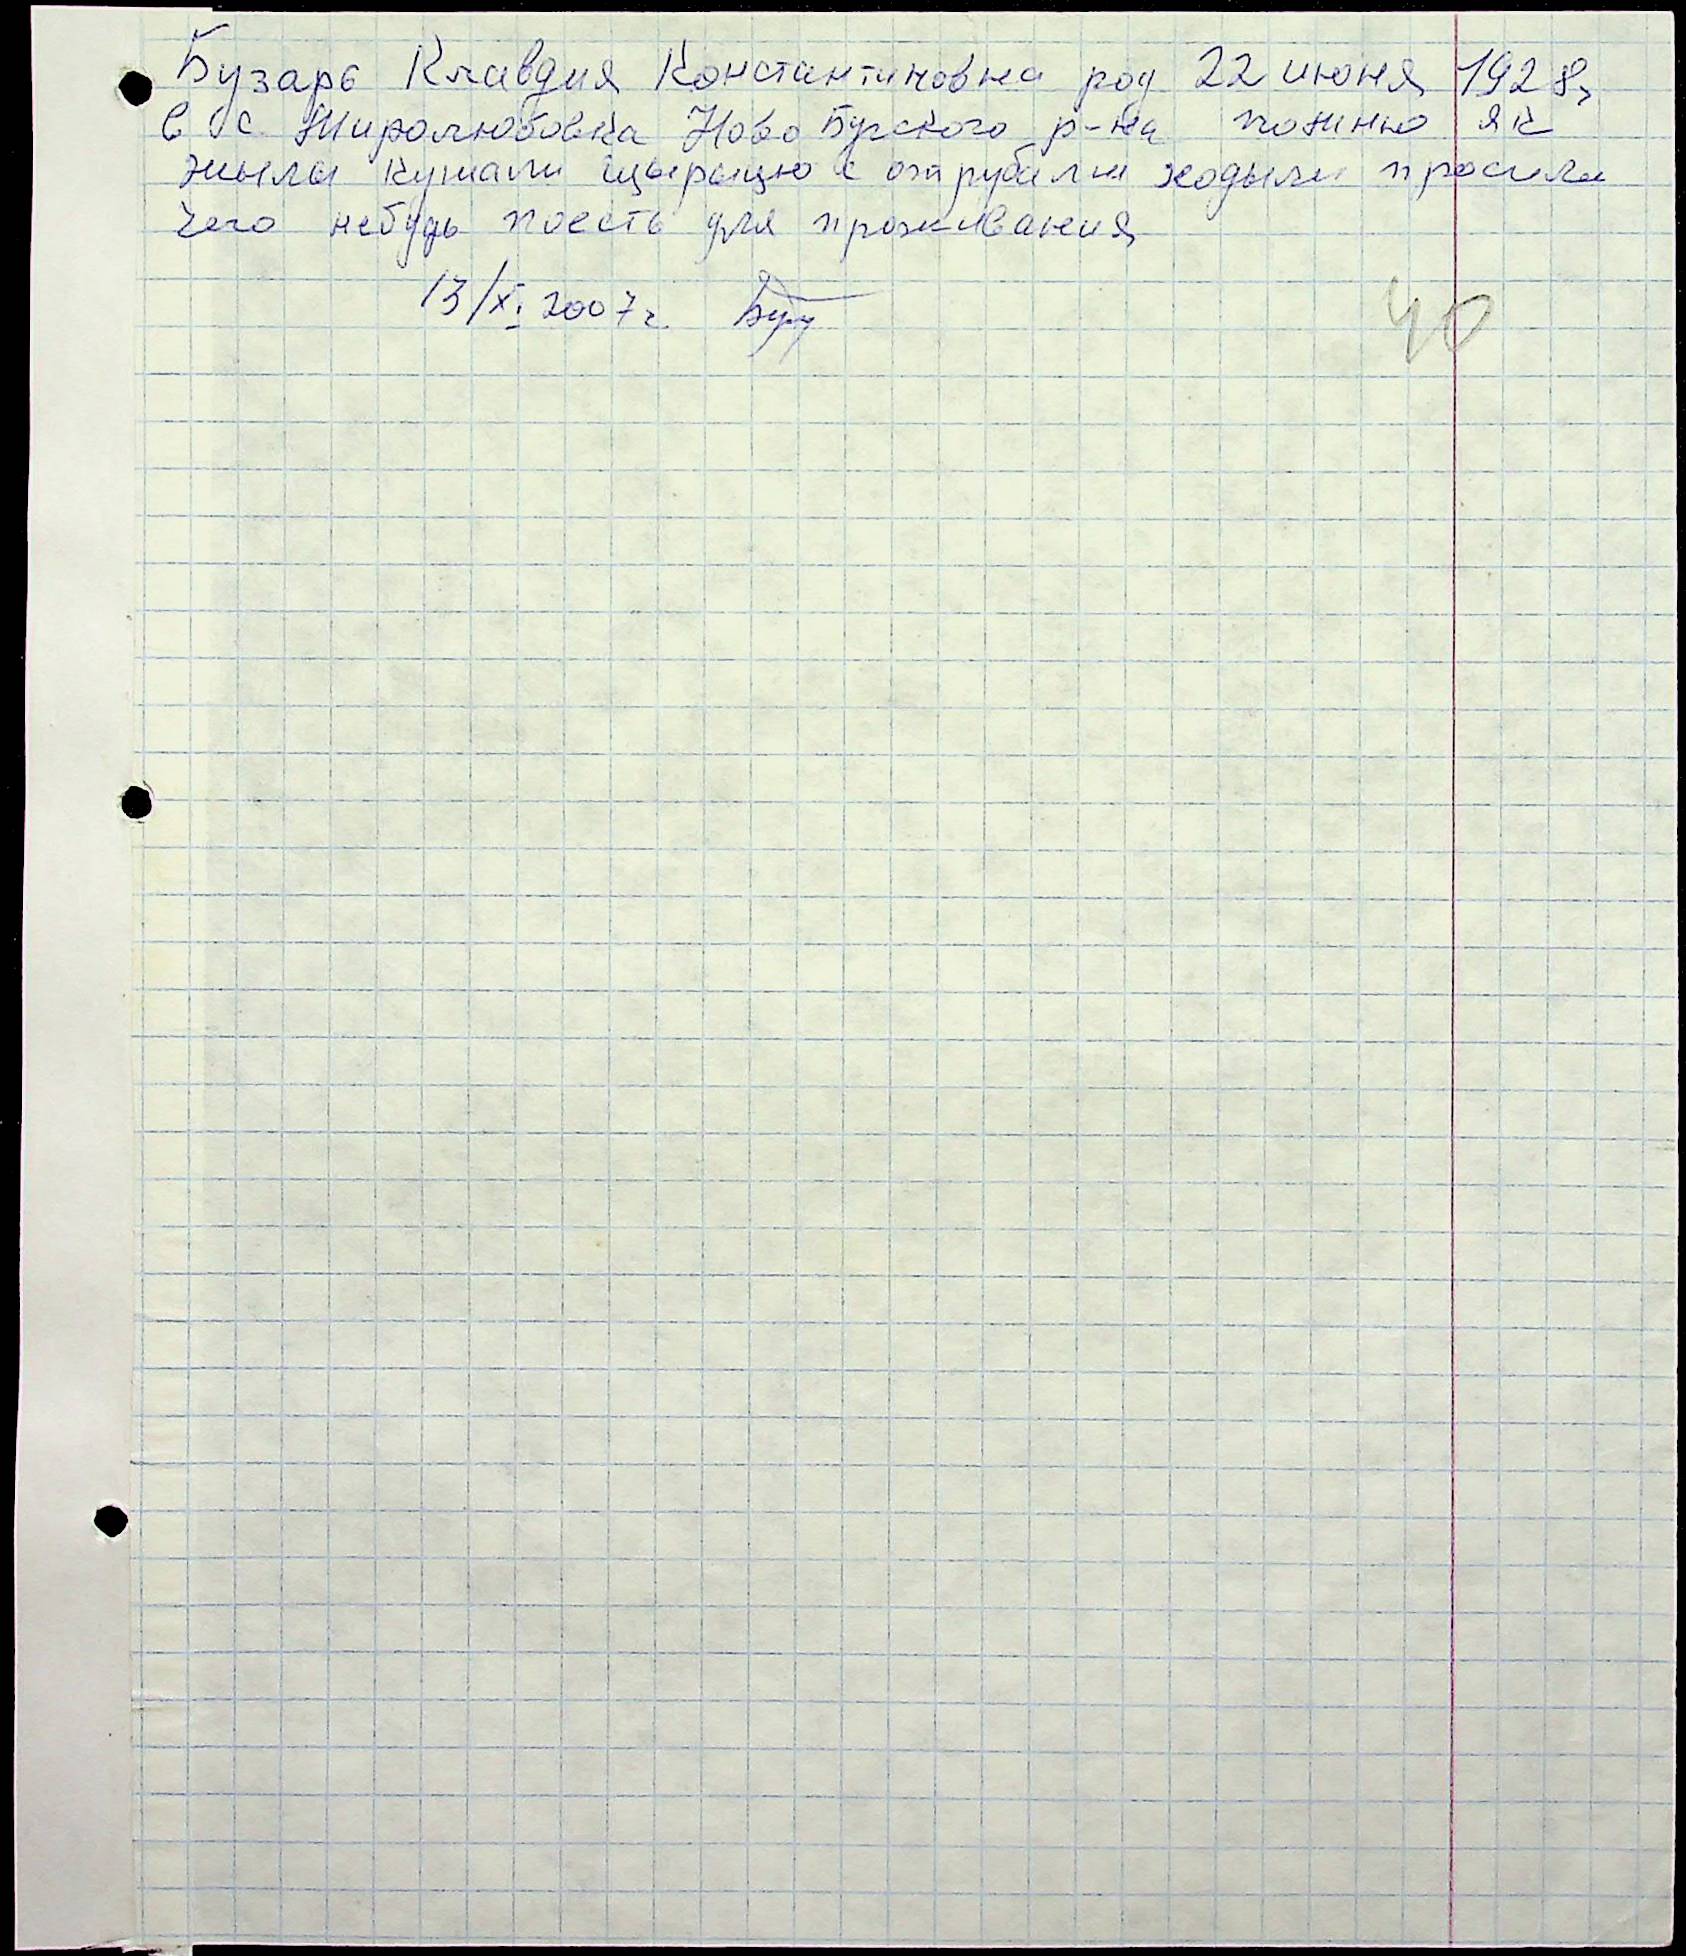 Бузарь Клавдия Константиновна род 22 июня 1928,
в с. Миролюбовка Ново Бугского р-на помню як
жылы кушали щырыцю с отрубями ходыли просили
чего небудь поесть для проживания
13/XI 2007г.
40